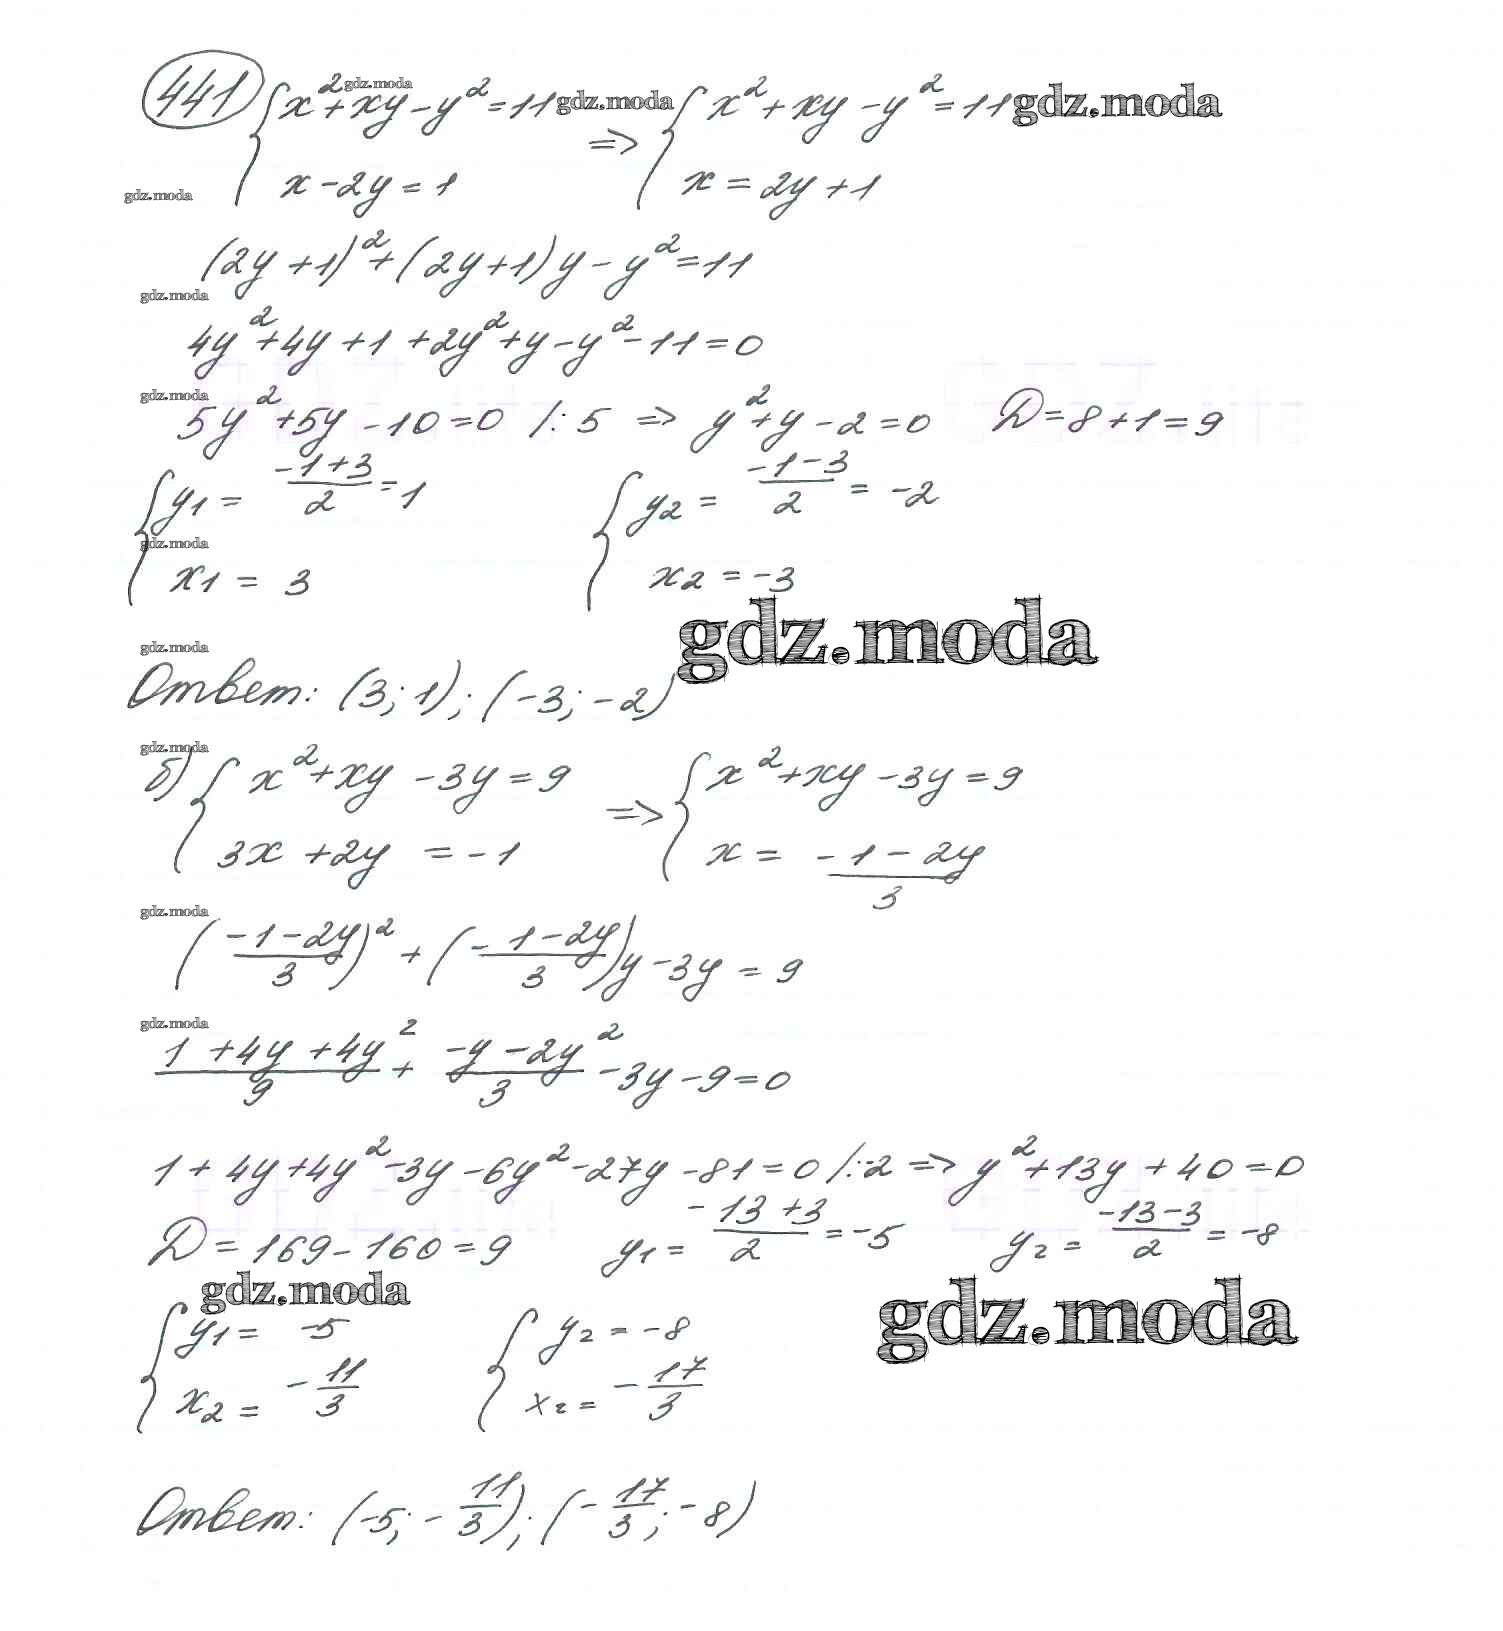 441 { x² + xy - y² = 11 ⇒ { x² + xy - y² = 11
gdz.moda gdz.moda gdz.moda
x - 2y = 1 x = 2y + 1
gdz.moda
(2y + 1)² + (2y + 1)y - y² = 11
gdz.moda
4y² + 4y + 1 + 2y² + y - y² - 11 = 0
gdz.moda
5y² + 5y - 10 = 0 /: 5 ⇒ y² + y - 2 = 0 D = 8 + 1 = 9
{ y1 = (-1+3)/2 = 1 { y2 = (-1-3)/2 = -2
gdz.moda
x1 = 3 x2 = -3
gdz.moda
gdz.moda
Ответ: (3; 1); (-3; -2)
gdz.moda
б) { x² + xy - 3y = 9 ⇒ { x² + xy - 3y = 9
3x + 2y = -1 x = (-1-2y)/3
gdz.moda
((-1-2y)/3)² + ((-1-2y)/3)y - 3y = 9
gdz.moda
(1 + 4y + 4y²)/9 + (-y - 2y²)/3 - 3y - 9 = 0
1 + 4y + 4y² - 3y - 6y² - 27y - 81 = 0 /:-2 ⇒ y² + 13y + 40 = 0
D = 169 - 160 = 9 y1 = (-13+3)/2 = -5 y2 = (-13-3)/2 = -8
gdz.moda gdz.moda
{ y1 = -5 { y2 = -8
x2 = -11/3 x2 = -17/3
Ответ: (-5; -11/3); (-17/3; -8)